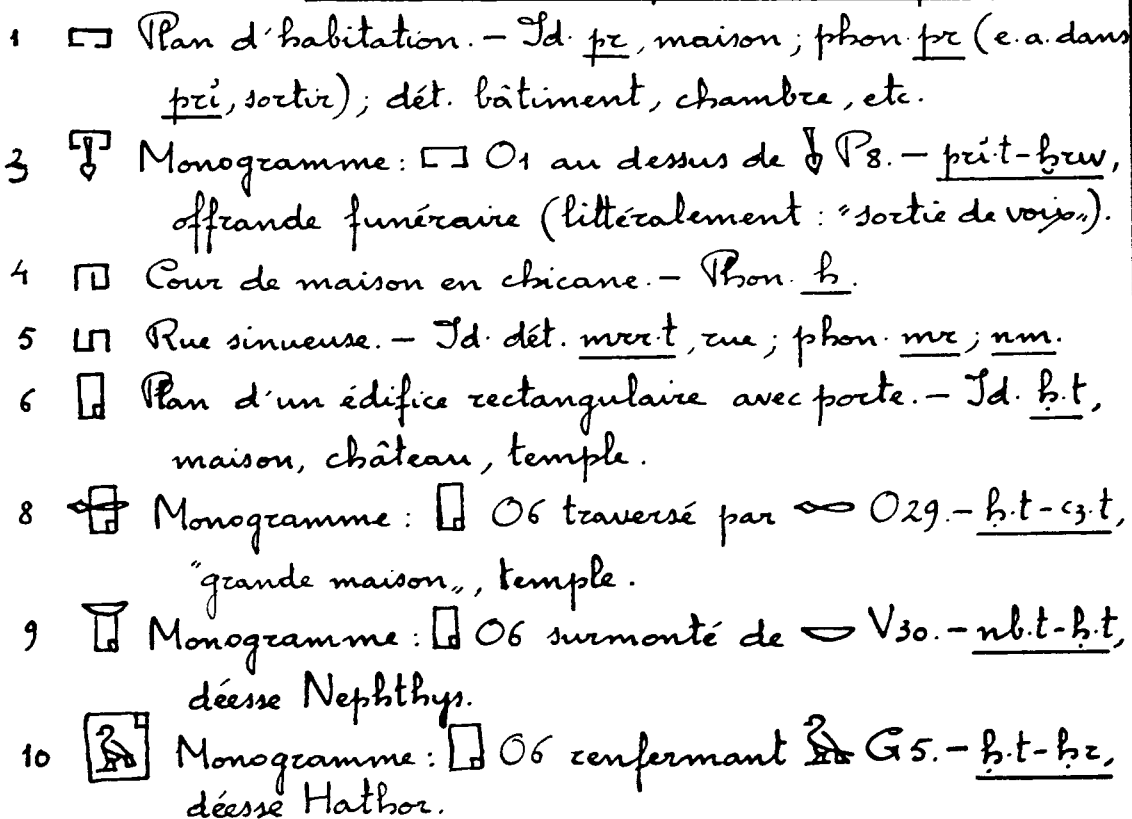 1 𓉐 Plan d'habitation. – Id. pr, maison ; phon. pr (e.a. dans
prỉ, sortir) ; dét. bâtiment, chambre, etc.
3 𓉓 Monogramme : 𓉐 O1 au dessus de 𓊤 P8. – prỉ.t-ḫrw,
offrande funéraire (littéralement : "sortie de voix„).
4 𓉔 Cour de maison en chicane. – Phon. h.
5 𓉕 Rue sinueuse. – Id. dét. mrr.t, rue ; phon. mr ; nm.
6 𓉗 Plan d'un édifice rectangulaire avec porte. – Id. ḥ.t,
maison, château, temple.
8 𓉛 Monogramme : 𓉗 O6 traversé par 𓉻 O29. – ḥ.t-ꜥꜣ.t,
"grande maison„, temple.
9 𓉠 Monogramme : 𓉗 O6 surmonté de 𓎟 V30. – nb.t-ḥ.t,
déesse Nephthys.
10 𓉡 Monogramme : 𓉗 O6 renfermant 𓅃 G5. – ḥ.t-ḥr,
déesse Hathor.